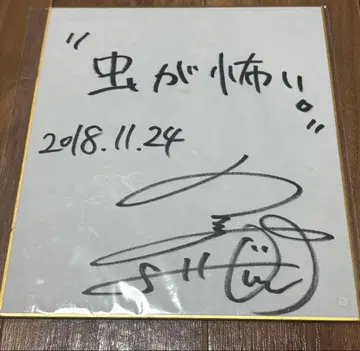 "虫が怖い。"
2018.11.24